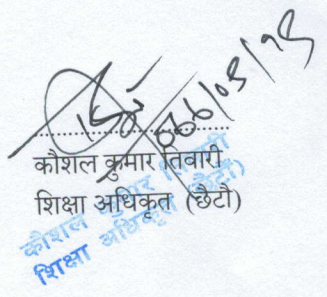 कौशल कुमार तिवारी
शिक्षा अधिकृत (छैटौं)
कौशल कुमार तिवारी
शिक्षा अधिकृत (छैटौं)